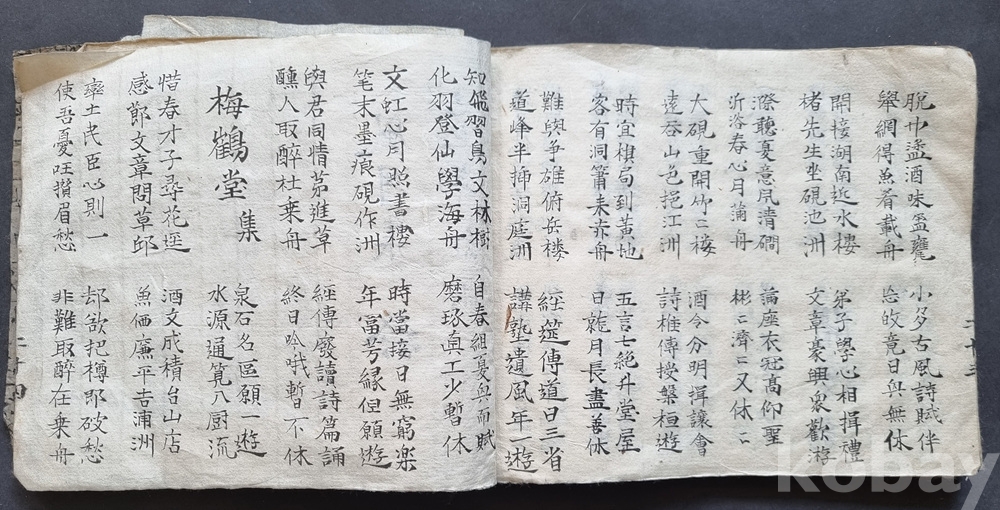 脫巾盞酒味盃甕 小多古風詩賦伴
擧網得魚肴載舟 恣 竟日與無休
開接湖南近水樓 第子學心相揖禮
楮先生坐硯池洲 文章豪興衆歡遊
澄聽夏意夙清磵 論座衣冠高仰聖
近洛春心月蒲舟 彬〻濟〻又休〻
大硯重開竹二樓 酒令分明揖讓會
遠吞山色挹江洲 詩椎傳授盤桓遊
時宜棋局到黃地 五言七絶升堂屋
客有洞簫来赤舟 日就月長盡善休
難與爭雄俯岳樓 經筵傳道日三省
道峰半揷洞庭洲 講塾遺風年一遊
知飛習鳥文林樹 自春徂夏與而賦
化羽登仙學海舟 磨琢眞工少暫休
文虹心月照書樓 時當接日無窮楽
笔末墨痕硯作洲 年富芳緣但願遊
與君同情茅進草 經傳廢讀詩篇誦
醺人取醉杜乗舟 終日吟哦暫不休
梅鶴堂 集
泉石名區願一遊
水源通筧八厨流
惜春才子尋花逕 酒文成積台山店
感郞文章問草邱 魚価廉平吉浦洲
率土民臣心則一 却欲把樽即破愁
使吾憂 攢眉愁 非難取醉在乗舟
二十三
二十四
kobay